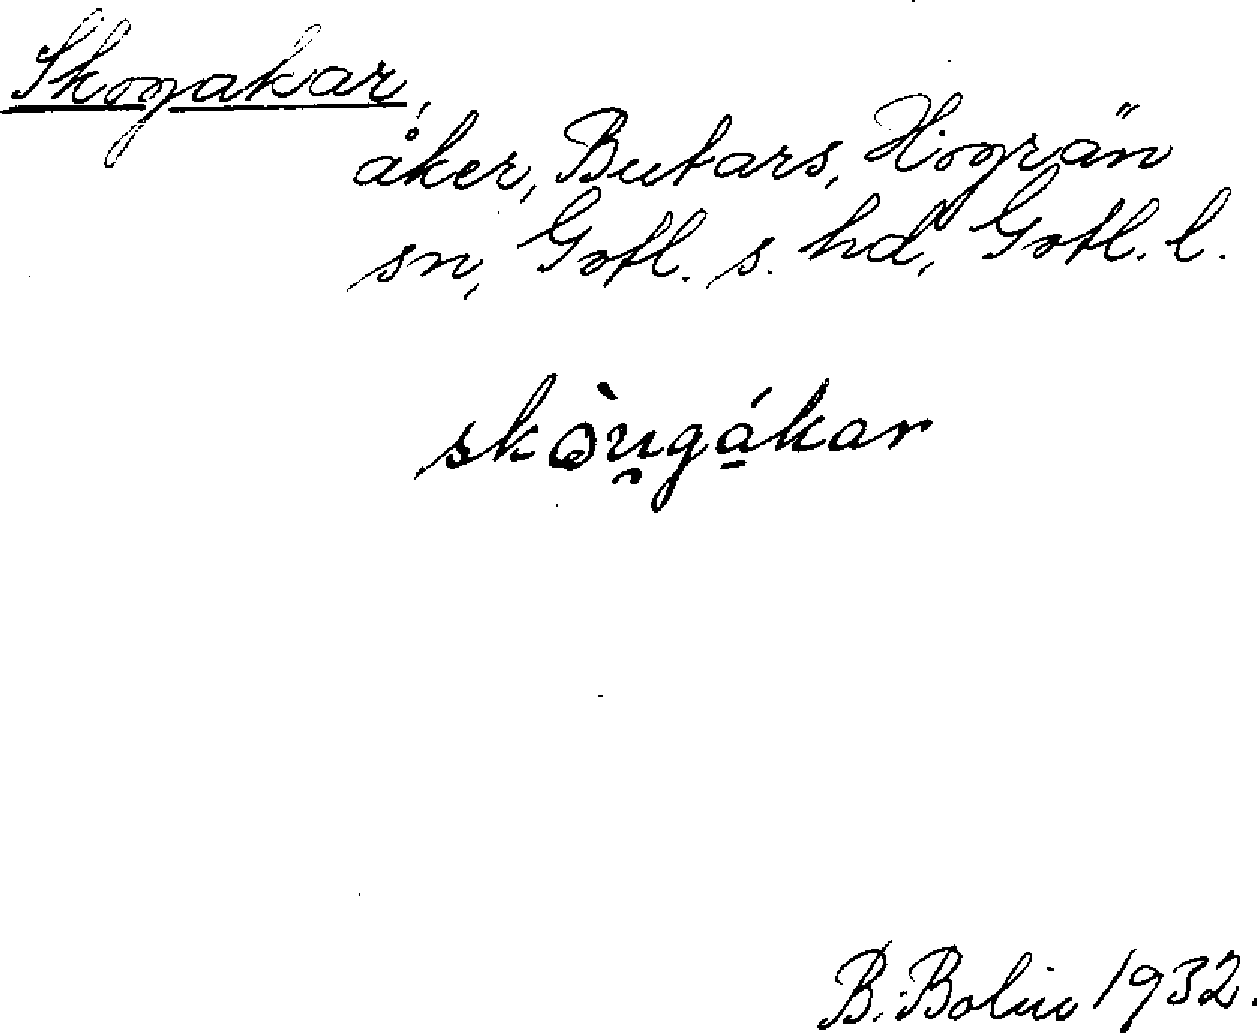 Skogakar,
åker, Butars, Hogrän
sn, Gotl. s. hd, Gotl. l.
skə̀u̯gá̱kar
B. Bolin 1932.